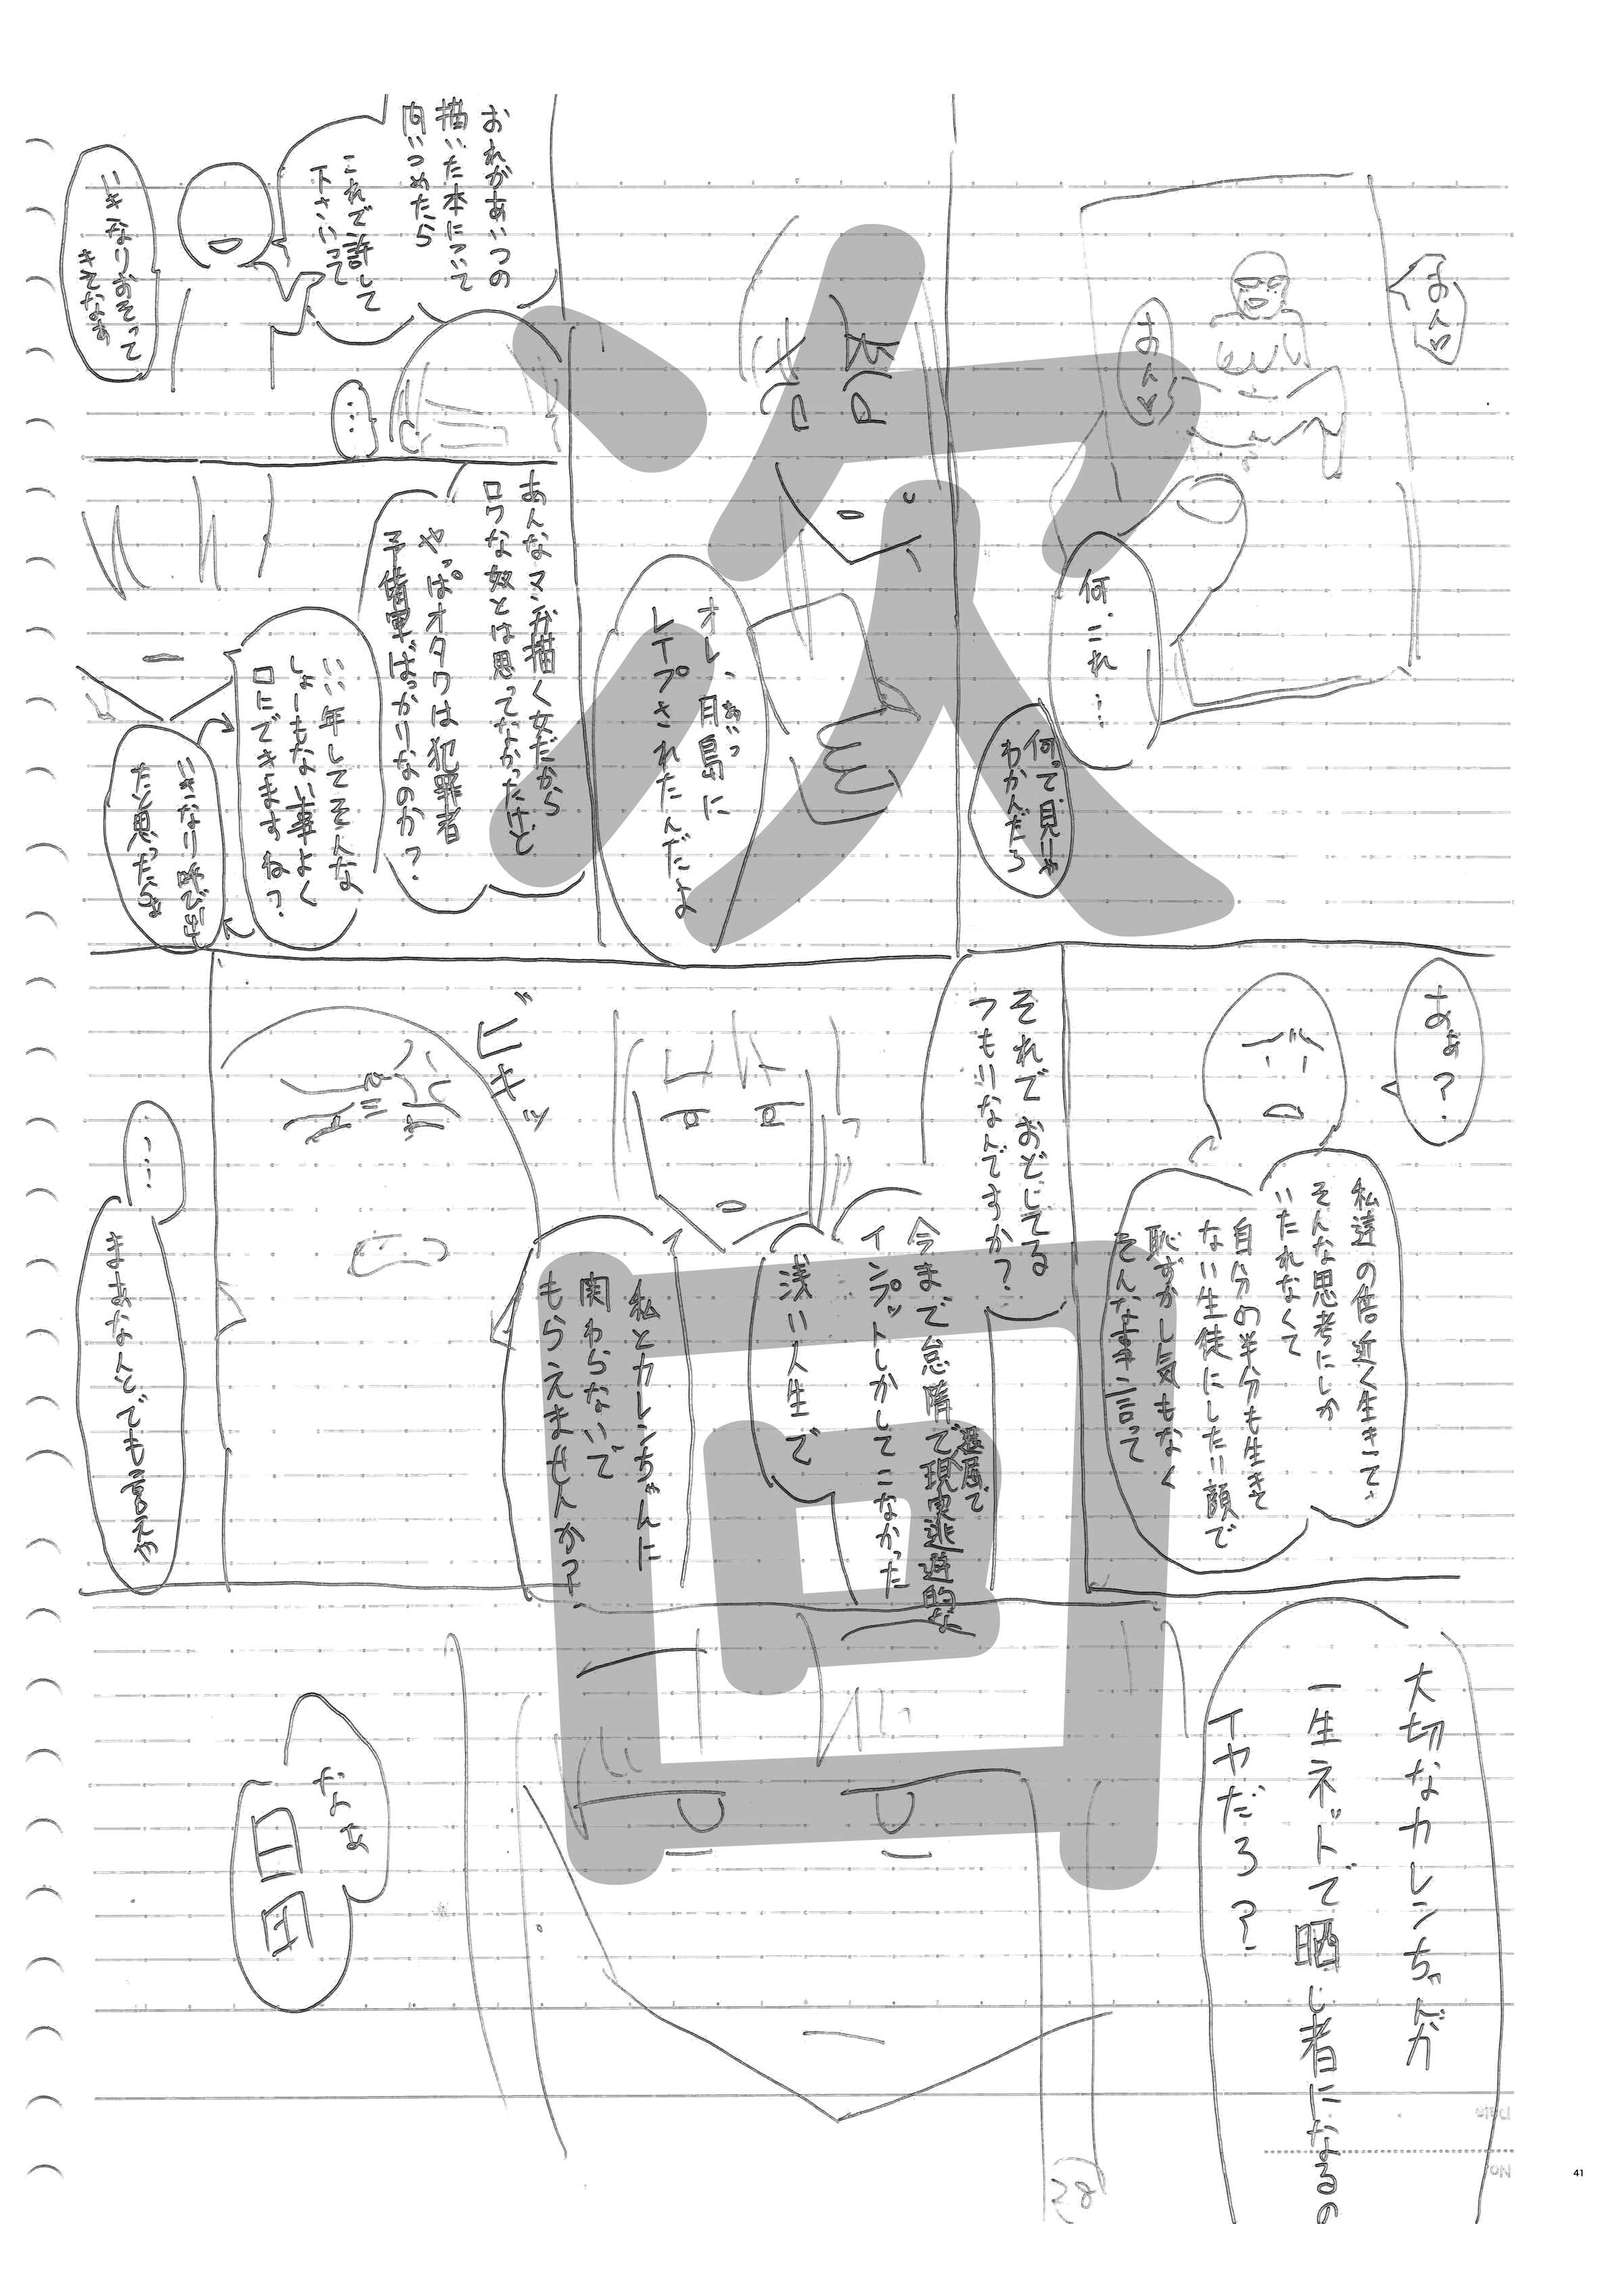 あん♡
あん♡
何、これ…
何って見りゃ
わかんだろ
オレ、目島に
あいつ
レイプされたんだよ
おれがあいつの
描いた本について
問いつめたら
これで許して
下さいって
いきなりおそって
きてなぁ
…
あんなマンガ描く女だから
ロクな奴とは思ってなかったけど
やっぱオタクは犯罪者
予備軍ばっかりなのか?
いい年してそんな
しょーもない事よく
口にできますね?
いきなり呼び出し
だと思ったら
あぁ?
私達の倍近く生きて、
そんな思考にしか
いたれなくて
自分の半分も生きて
ない生徒にしたり顔で
恥ずかし気もなく
そんな事言って
それでおどしてる
つもりなんですか?
今まで怠惰で退屈で現実逃避的な
インプットしかしてこなかった
浅い人生で
私とカレンちゃんに
関わらないで
もらえませんか?
ビキッ
…
まあなんとでも言えや
大切なカレンちゃんが
一生ネットで晒し者になるの
イヤだろ?
なぁ
日田
次回
38
41